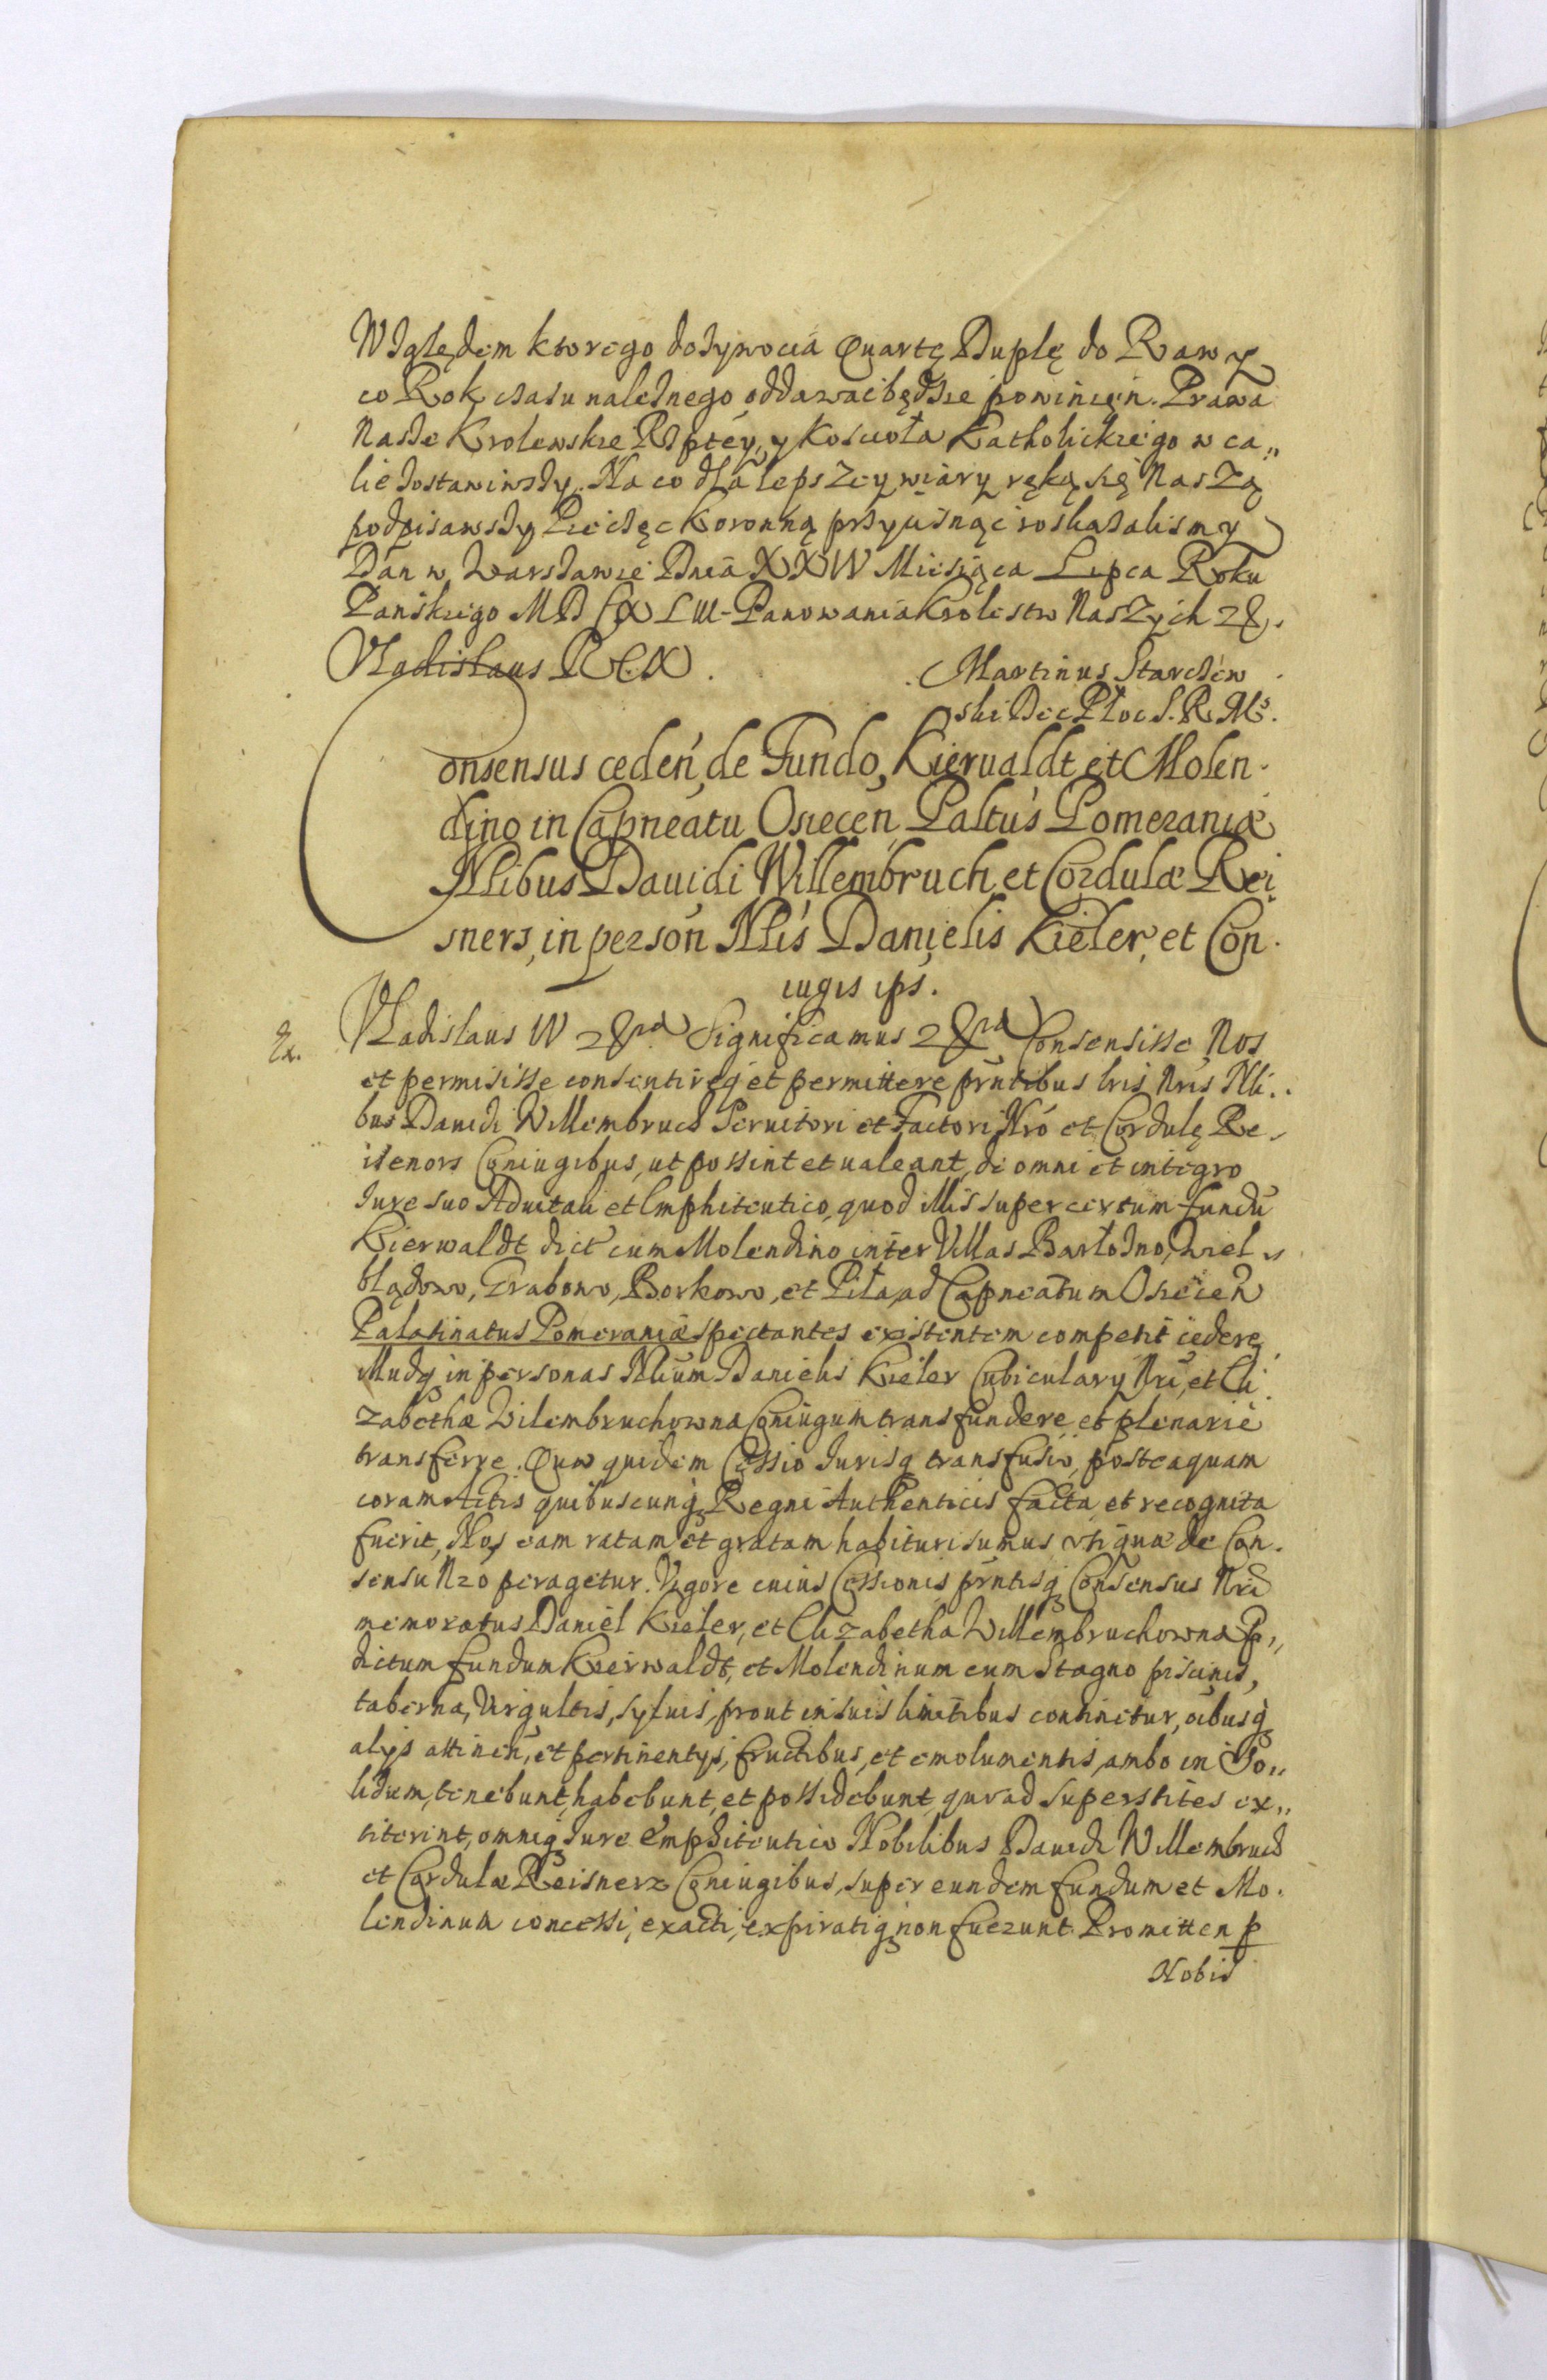 Względem ktorego dożywocia Quartę Duplę do Rawy
co Rok czasu należnego oddawac będzie powinien. Prawa
Nasze Krolewskie Rzptey, y Koscioła Katholickiego w ca„
lie zostawiwszy. Na co dla lepszey wiary ręką się Naszą
podpisawszy Pieczęc Koronną przycisnąc roskazalismy
Dan w Warszawie Dnia XXIV Miesiąca Lipca Roku
Panskiego Panowania Krolestw Naszych
Vladislaus REX. Martinus Starczew
ski Dec Płoc S. R. Ms.
Consensus ceden, de Fundo, Kierualdt et Molen-
dino in Capneatu Osiecen Paltus Pomeraniæ
Nlibus Dauidi Willembruch et Cordulæ Rei
sners, in person Nlis Danielis Kieler, et Con-
iugis ips.
Ex. Vladislaus IV &ra Significamus &ra Consensisse Nos
et permisisse consentireq et permittere prntibus lris Nris Nli-
bus Dauidi Willembruch Seruitori et Factori Nro et Cordulę Re-
isenors Coniugibus, ut possint et ualeant, de omni et integro
Iure suo Aduitali et Emphiteutico, quod illis super certum fundu
Kierwaldt dict cum Molendino inter Villas Bartożno, Wiel
blądowo, Grabowo, Borkowo, et Piła, ad Capneatum Osiecen
Palatinatus Pomeraniæ spectantes existentem competit cedere,
Illudq in personas Nlium Danielis Kieler Cubicularij Nri, et Eli
zabethæ Wilembruchowna Coniugum transfundere, et plenarie
transferre. Quæ quidem Cessio Iurisq transfusio, posteaquam
coram Actis quibuscunq Regni Authenticis facta, et recognita
fuerit, Nos eam ratam et gratam habituri sumus, vti quæ de Con-
sensu Nro peragetur. Vigore cuius Cessionis prntisq Consensus Nri
memoratus Daniel Kieler, et Elizabetha Willembruchowna p„
dictum fundum Kierwaldt, et Molendinum cum Stagno piscinis,
taberna, Virgultis, syluis, prout in suis limitibus continetur, oibusq
alijs attinen, et pertinentijs, fructibus, et emolumentis, ambo in So„
lidum, tenebunt, habebunt, et possidebunt, quoad superstites ex„
titerint, omniq Iure Emphiteutico Nobilibus Dauidi Willembruch
et Cordulæ Reisnerz Coniugibus, super eundem fundum et Mo-
lendinum concessi, exacti, expiratiq non fuerunt. Promitten p
Nobis